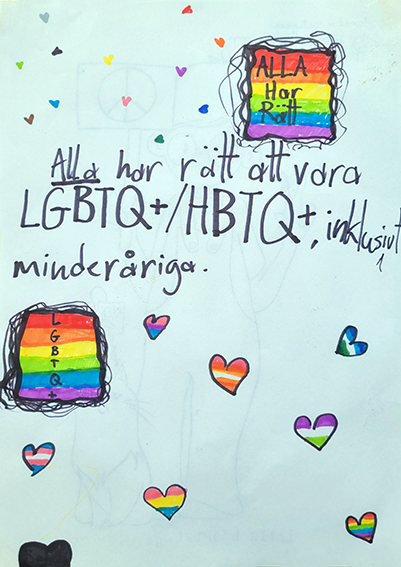 ALLA
Har
Rätt
Alla har rätt att vara
LGBTQ+/HBTQ+, inklusivt
minderåriga.
L
G
B
T
Q
+